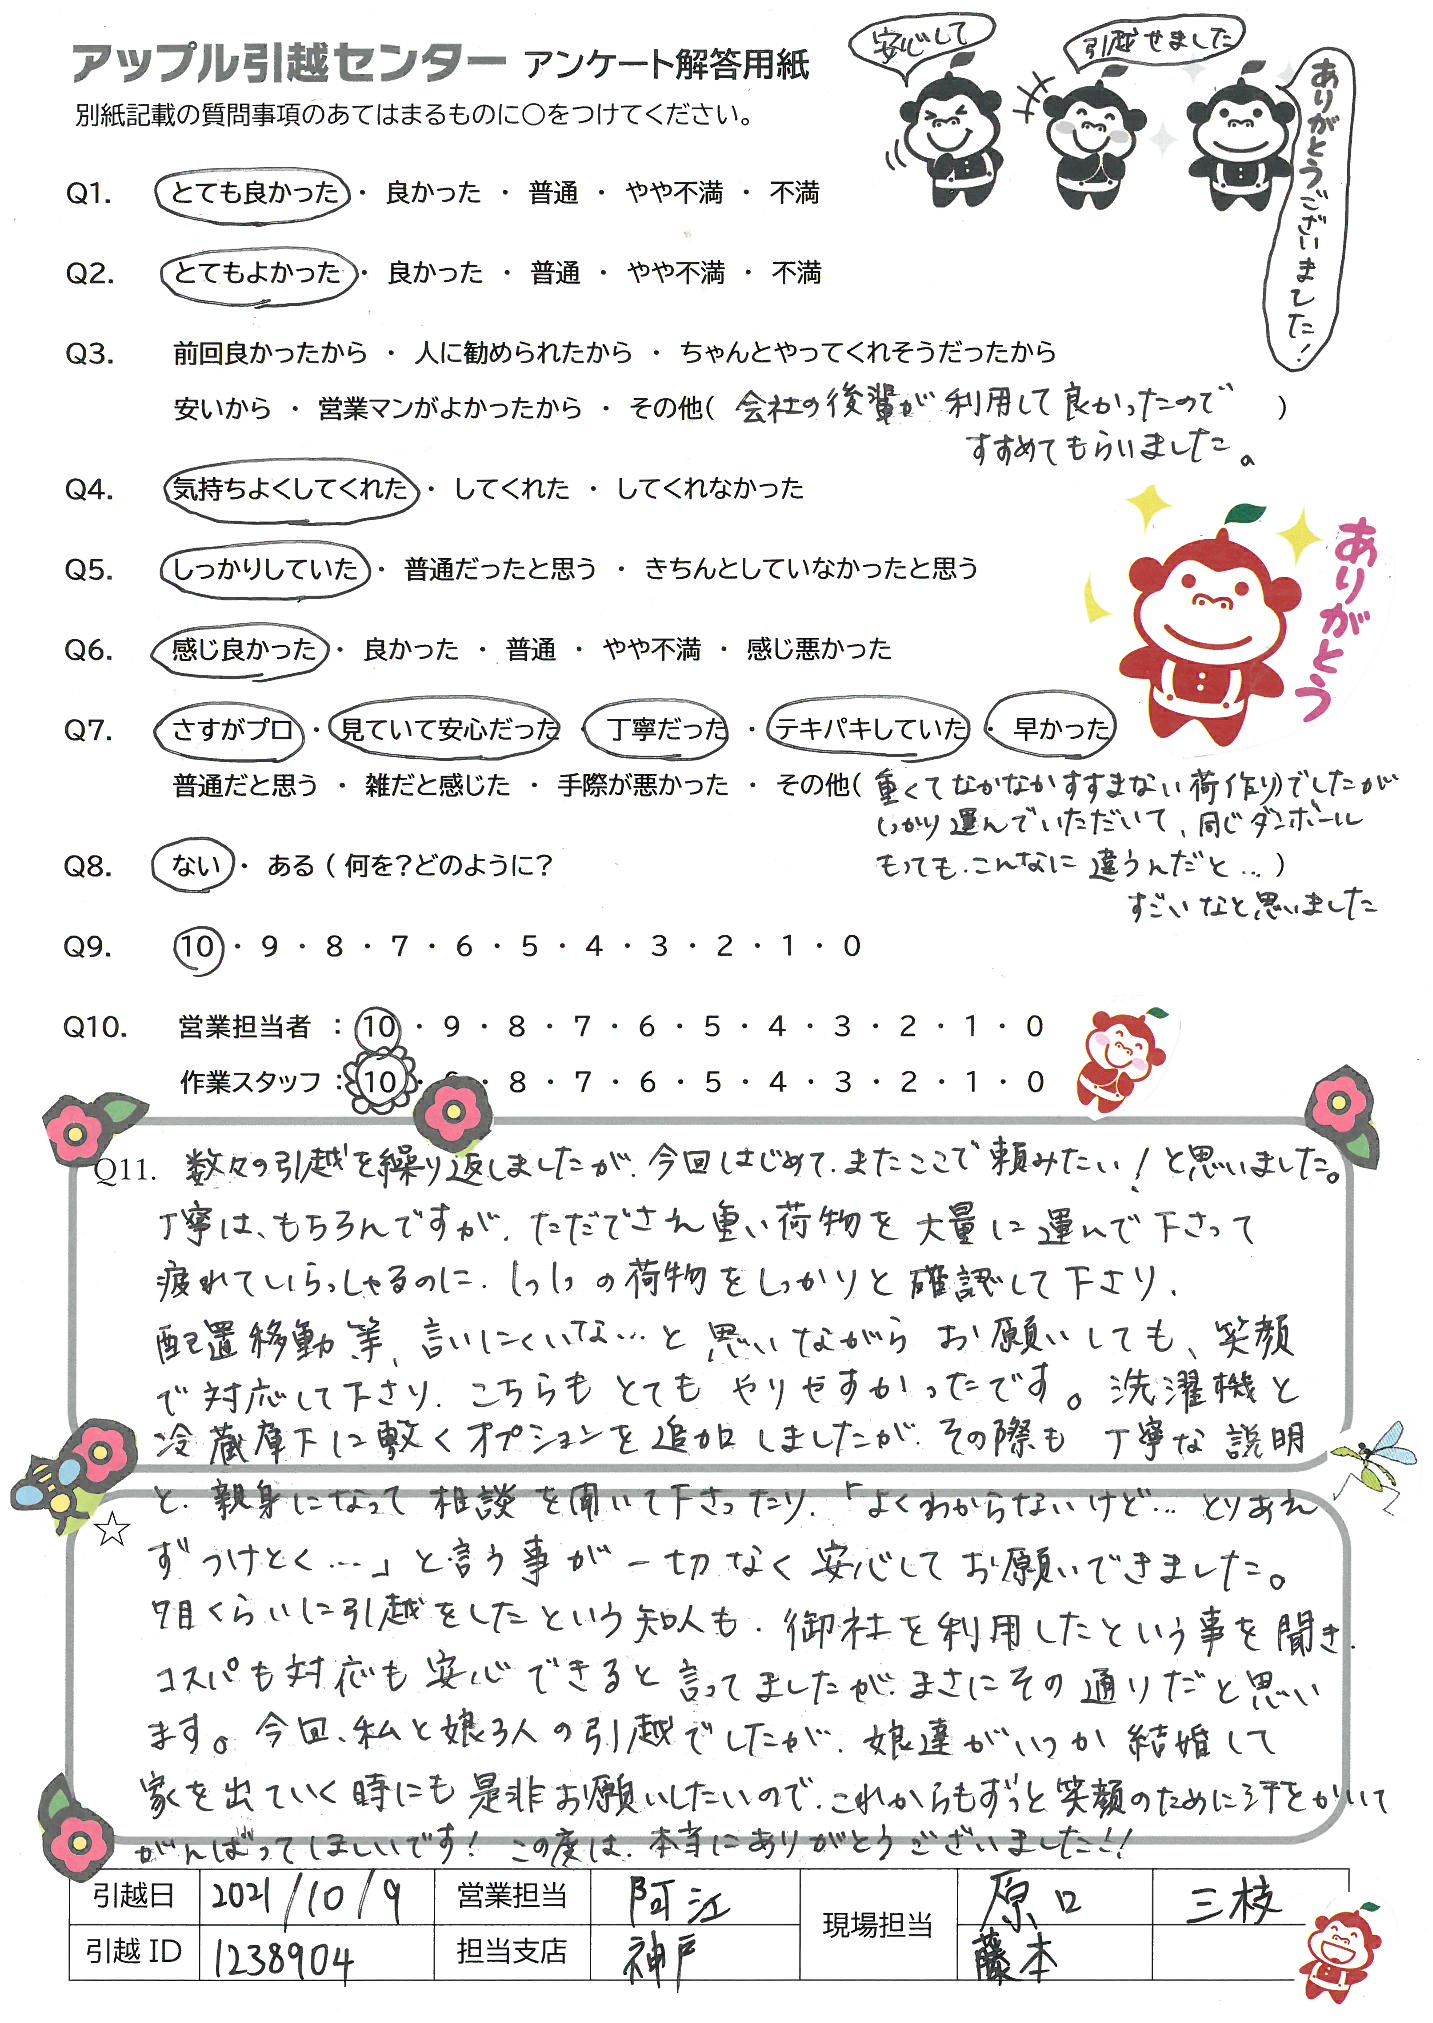 アップル引越センター アンケート解答用紙
別紙記載の質問事項のあてはまるものに○をつけてください。
安心して
引越せました
ありがとうございました!
Q1. とても良かった ・ 良かった ・ 普通 ・ やや不満 ・ 不満
Q2. とてもよかった ・ 良かった ・ 普通 ・ やや不満 ・ 不満
Q3. 前回良かったから ・ 人に勧められたから ・ ちゃんとやってくれそうだったから
安いから ・ 営業マンがよかったから ・ その他( 会社の後輩が利用して良かったので )
すすめてもらいました。
Q4. 気持ちよくしてくれた ・ してくれた ・ してくれなかった
Q5. しっかりしていた ・ 普通だったと思う ・ きちんとしていなかったと思う
ありがとう
Q6. 感じ良かった ・ 良かった ・ 普通 ・ やや不満 ・ 感じ悪かった
Q7. さすがプロ ・ 見ていて安心だった ・ 丁寧だった ・ テキパキしていた ・ 早かった
普通だと思う ・ 雑だと感じた ・ 手際が悪かった ・ その他( 重くてなかなかすすまない荷作りでしたが
しっかり運んでいただいて、同じダンボール
もっても、こんなに違うんだと… )
すごいなと思いました
Q8. ない ・ ある ( 何を?どのように?
Q9. 10 ・ 9 ・ 8 ・ 7 ・ 6 ・ 5 ・ 4 ・ 3 ・ 2 ・ 1 ・ 0
Q10. 営業担当者 : 10 ・ 9 ・ 8 ・ 7 ・ 6 ・ 5 ・ 4 ・ 3 ・ 2 ・ 1 ・ 0
作業スタッフ : 10 ・ 9 ・ 8 ・ 7 ・ 6 ・ 5 ・ 4 ・ 3 ・ 2 ・ 1 ・ 0
Q11. 数々の引越を繰り返しましたが、今回はじめて、またここで頼みたい!と思いました。
丁寧は、もちろんですが、ただでさえ重い荷物を大量に運んで下さって
疲れていらっしゃるのに、1つ1つの荷物をしっかりと確認して下さり、
配置移動等、言いにくいな…と思いながらお願いしても、笑顔
で対応して下さり、こちらもとてもやりやすかったです。洗濯機と
冷蔵庫下に敷くオプションを追加しましたが、その際も丁寧な説明
と、親身になって相談を聞いて下さったり、「よくわからないけど…とりあえ
☆
ずつけとく…」と言う事が一切なく安心してお願いできました。
7回くらいに引越をしたという知人も、御社を利用したという事を聞き、
コスパも対応も安心できると言ってましたが、まさにその通りだと思い
ます。今回、私と娘3人の引越でしたが、娘達がいつか結婚して
家を出ていく時にも是非お願いしたいので、これからもずっと笑顔のために汗をかいて
がんばってほしいです! この度は、本当にありがとうございました!!
引越日 2021/10/9 営業担当 阿江 現場担当 原口 三枝
引越 ID 1238904 担当支店 神戸 藤本